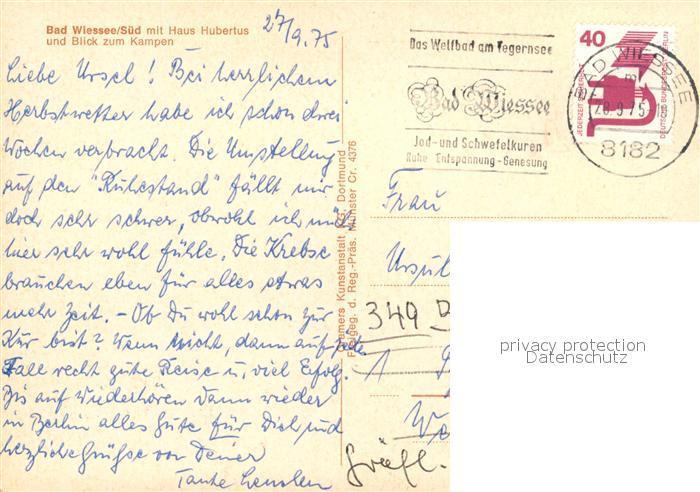 Bad Wiessee/Süd mit Haus Hubertus
und Blick zum Kampen
27/9.75
Liebe Ursel! Bei herrlichem
Herbstwetter habe ich schon drei
Wochen verbracht. Die Umstellung
auf den "Ruhestand" fällt mir
doch sehr schwer, obwohl ich mich
hier sehr wohl fühle. Die Krebse
brauchen eben für alles etwas
mehr Zeit. - Ob Du wohl schon zur
Kur bist? Wenn nicht, dann auf jeden
Fall recht gute Reise u. viel Erfolg.
Bis auf Wiederhören dann wieder
in Berlin alles Gute für Dich und
herzliche Grüße von Deiner
Tante
Krammers Kunstanstalt KG. Dortmund
Freigeg. d. Reg.-Präs. Münster Cr. 4376
Das Weltbad am Tegernsee
Bad Wiessee
Jod- und Schwefelkuren
Ruhe - Entspannung - Genesung
40
JEDERZEIT SICHERHEIT
DEUTSCHE BUNDESPOST BERLIN
BAD WIESSEE
28.9.75
8182
Frau
Ursul
349
1
privacy protection
Datenschutz